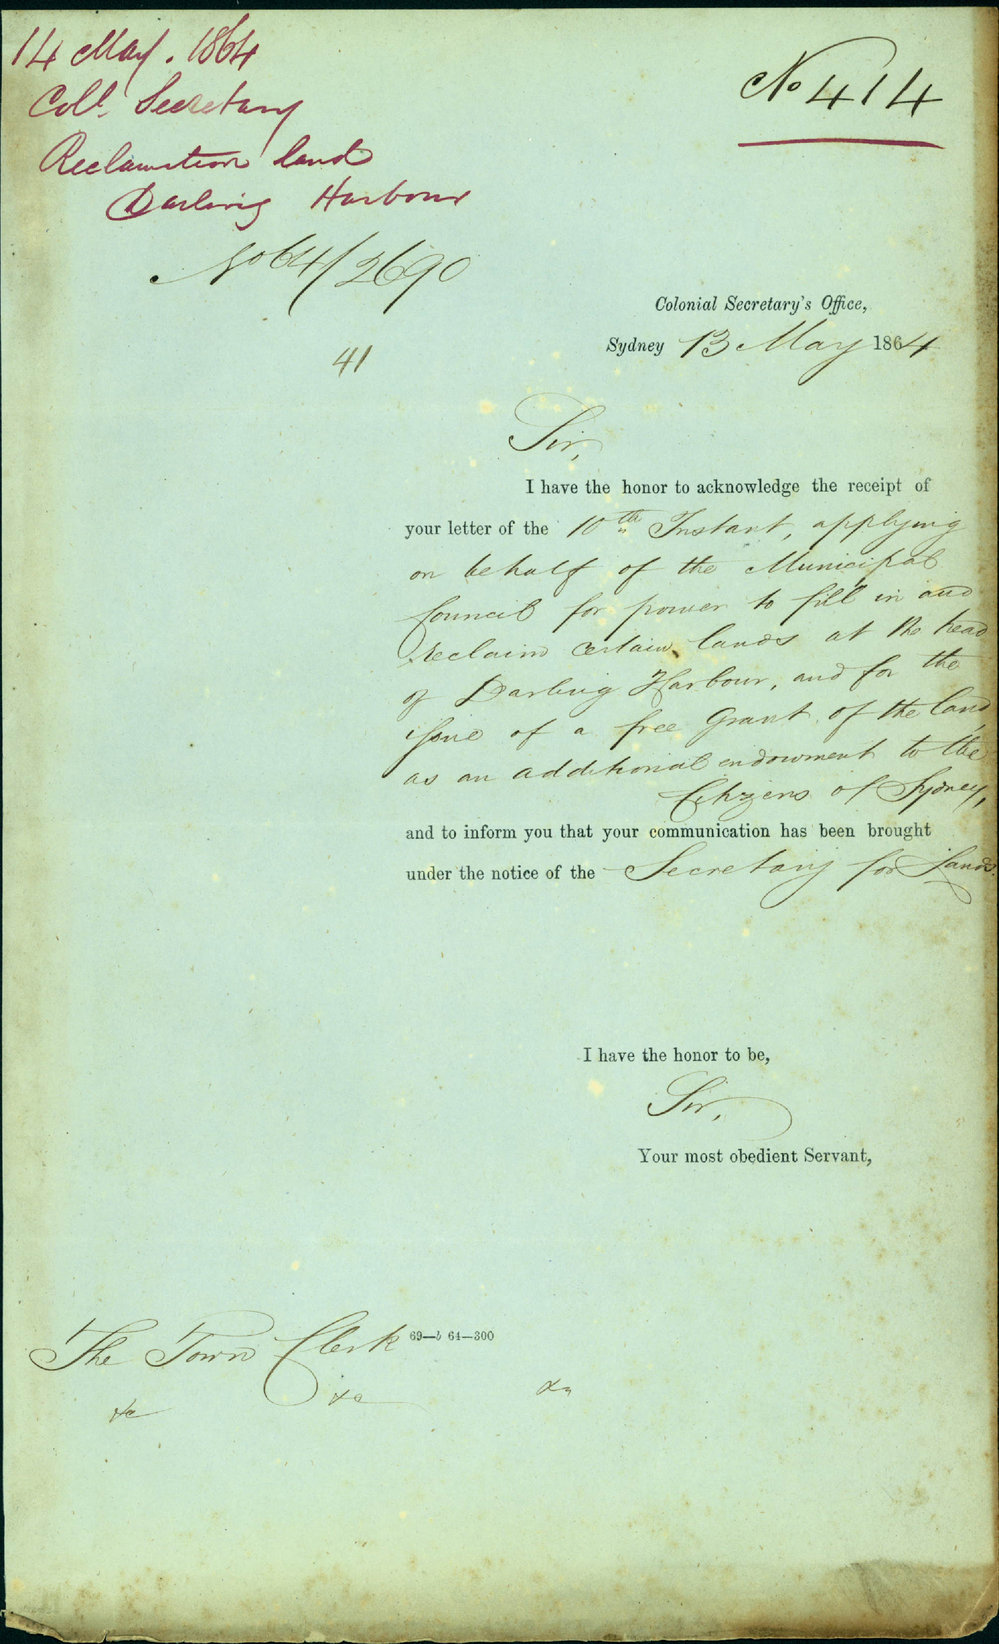 14 May. 1864
Coll. Secretary
Reclamation land
Darling Harbour
No 414
No 64/2690
41
Colonial Secretary's Office,
Sydney 13 May 1864
Sir,
I have the honor to acknowledge the receipt of
your letter of the 10th Instant, applying
on behalf of the Municipal
Council for power to fill in and
reclaim certain lands at the head
of Darling Harbour, and for the
issue of a free Grant of the land
as an additional endowment to the
Citizens of Sydney,
and to inform you that your communication has been brought
under the notice of the Secretary for Lands.
I have the honor to be,
Sir,
Your most obedient Servant,
The Town Clerk
69—b 64—300
&c &c &c